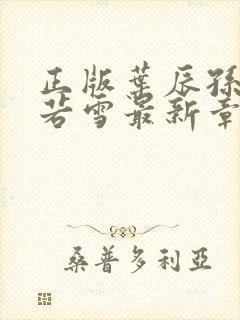 正版葉辰孫
若雪最新章
桑普多利亞